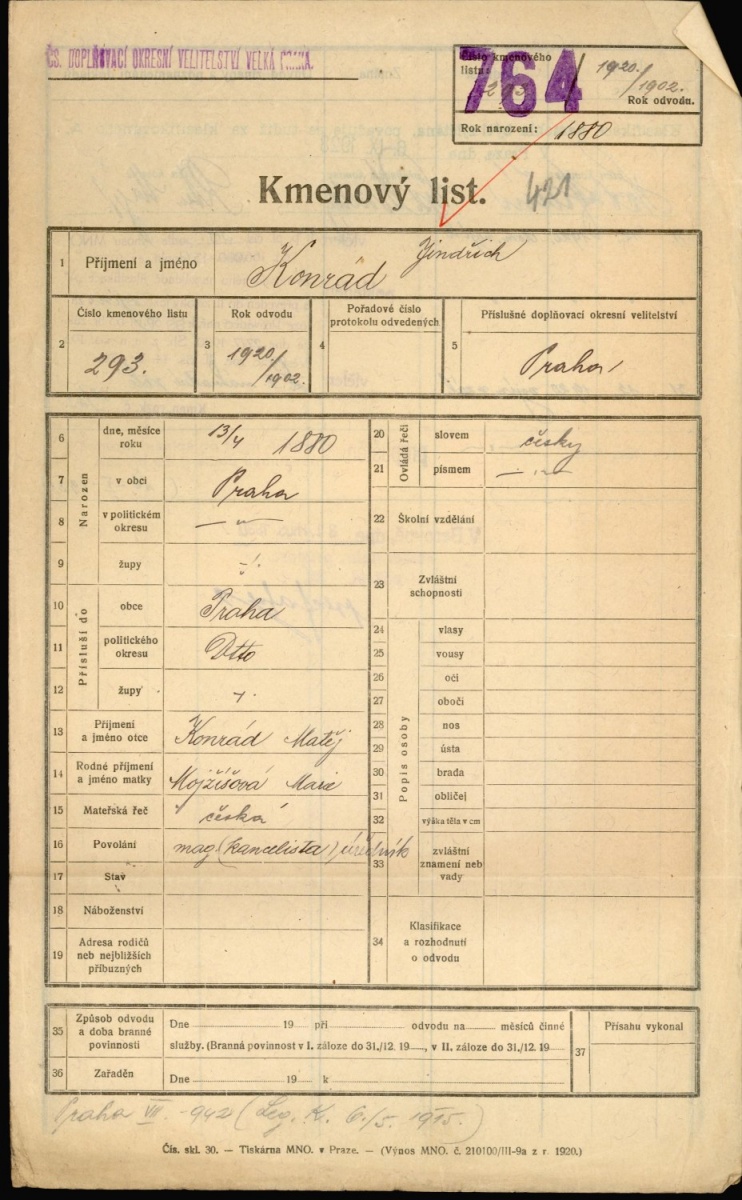 ČS. DOPLŇOVACÍ OKRESNÍ VELITELSTVÍ VELKÁ PRAHA.
Číslo kmenového
listu:
293
764
1920/1902.
Rok odvodu.
Rok narození: 1880
Kmenový list. 421
1 Příjmení a jméno Konrád Jindřich
2 Číslo kmenového listu 293.
3 Rok odvodu 1920/1902.
4 Pořadové číslo protokolu odvedených
5 Příslušné doplňovací okresní velitelství Praha
Narozen
6 dne, měsíce roku 13/4 1880
7 v obci Praha
8 v politickém okresu —"—
9 župy
Přísluší do
10 obce Praha
11 politického okresu Dtto
12 župy
13 Příjmení a jméno otce Konrád Matěj
14 Rodné příjmení a jméno matky Mojžíšová Marie
15 Mateřská řeč česká
16 Povolání mag. (kancelista) úředník
17 Stav
18 Náboženství
19 Adresa rodičů neb nejbližších příbuzných
Ovládá řeči
20 slovem česky
21 písmem —"—
22 Školní vzdělání
23 Zvláštní schopnosti
Popis osoby
24 vlasy
25 vousy
26 oči
27 obočí
28 nos
29 ústa
30 brada
31 obličej
32 výška těla v cm
33 zvláštní znamení neb vady
34 Klasifikace a rozhodnutí o odvodu
35 Způsob odvodu a doba branné povinnosti
Dne 19 při odvodu na měsíců činné
služby. (Branná povinnost v I. záloze do 31./12. 19 , v II. záloze do 31./12. 19
36 Zařaděn
Dne 19 k
37 Přísahu vykonal
Praha VII. - 942 (Leg. K. 6./5. 1915.)
Čís. skl. 30. — Tiskárna MNO. v Praze. — (Výnos MNO. č. 210100/III-9a z r. 1920.)